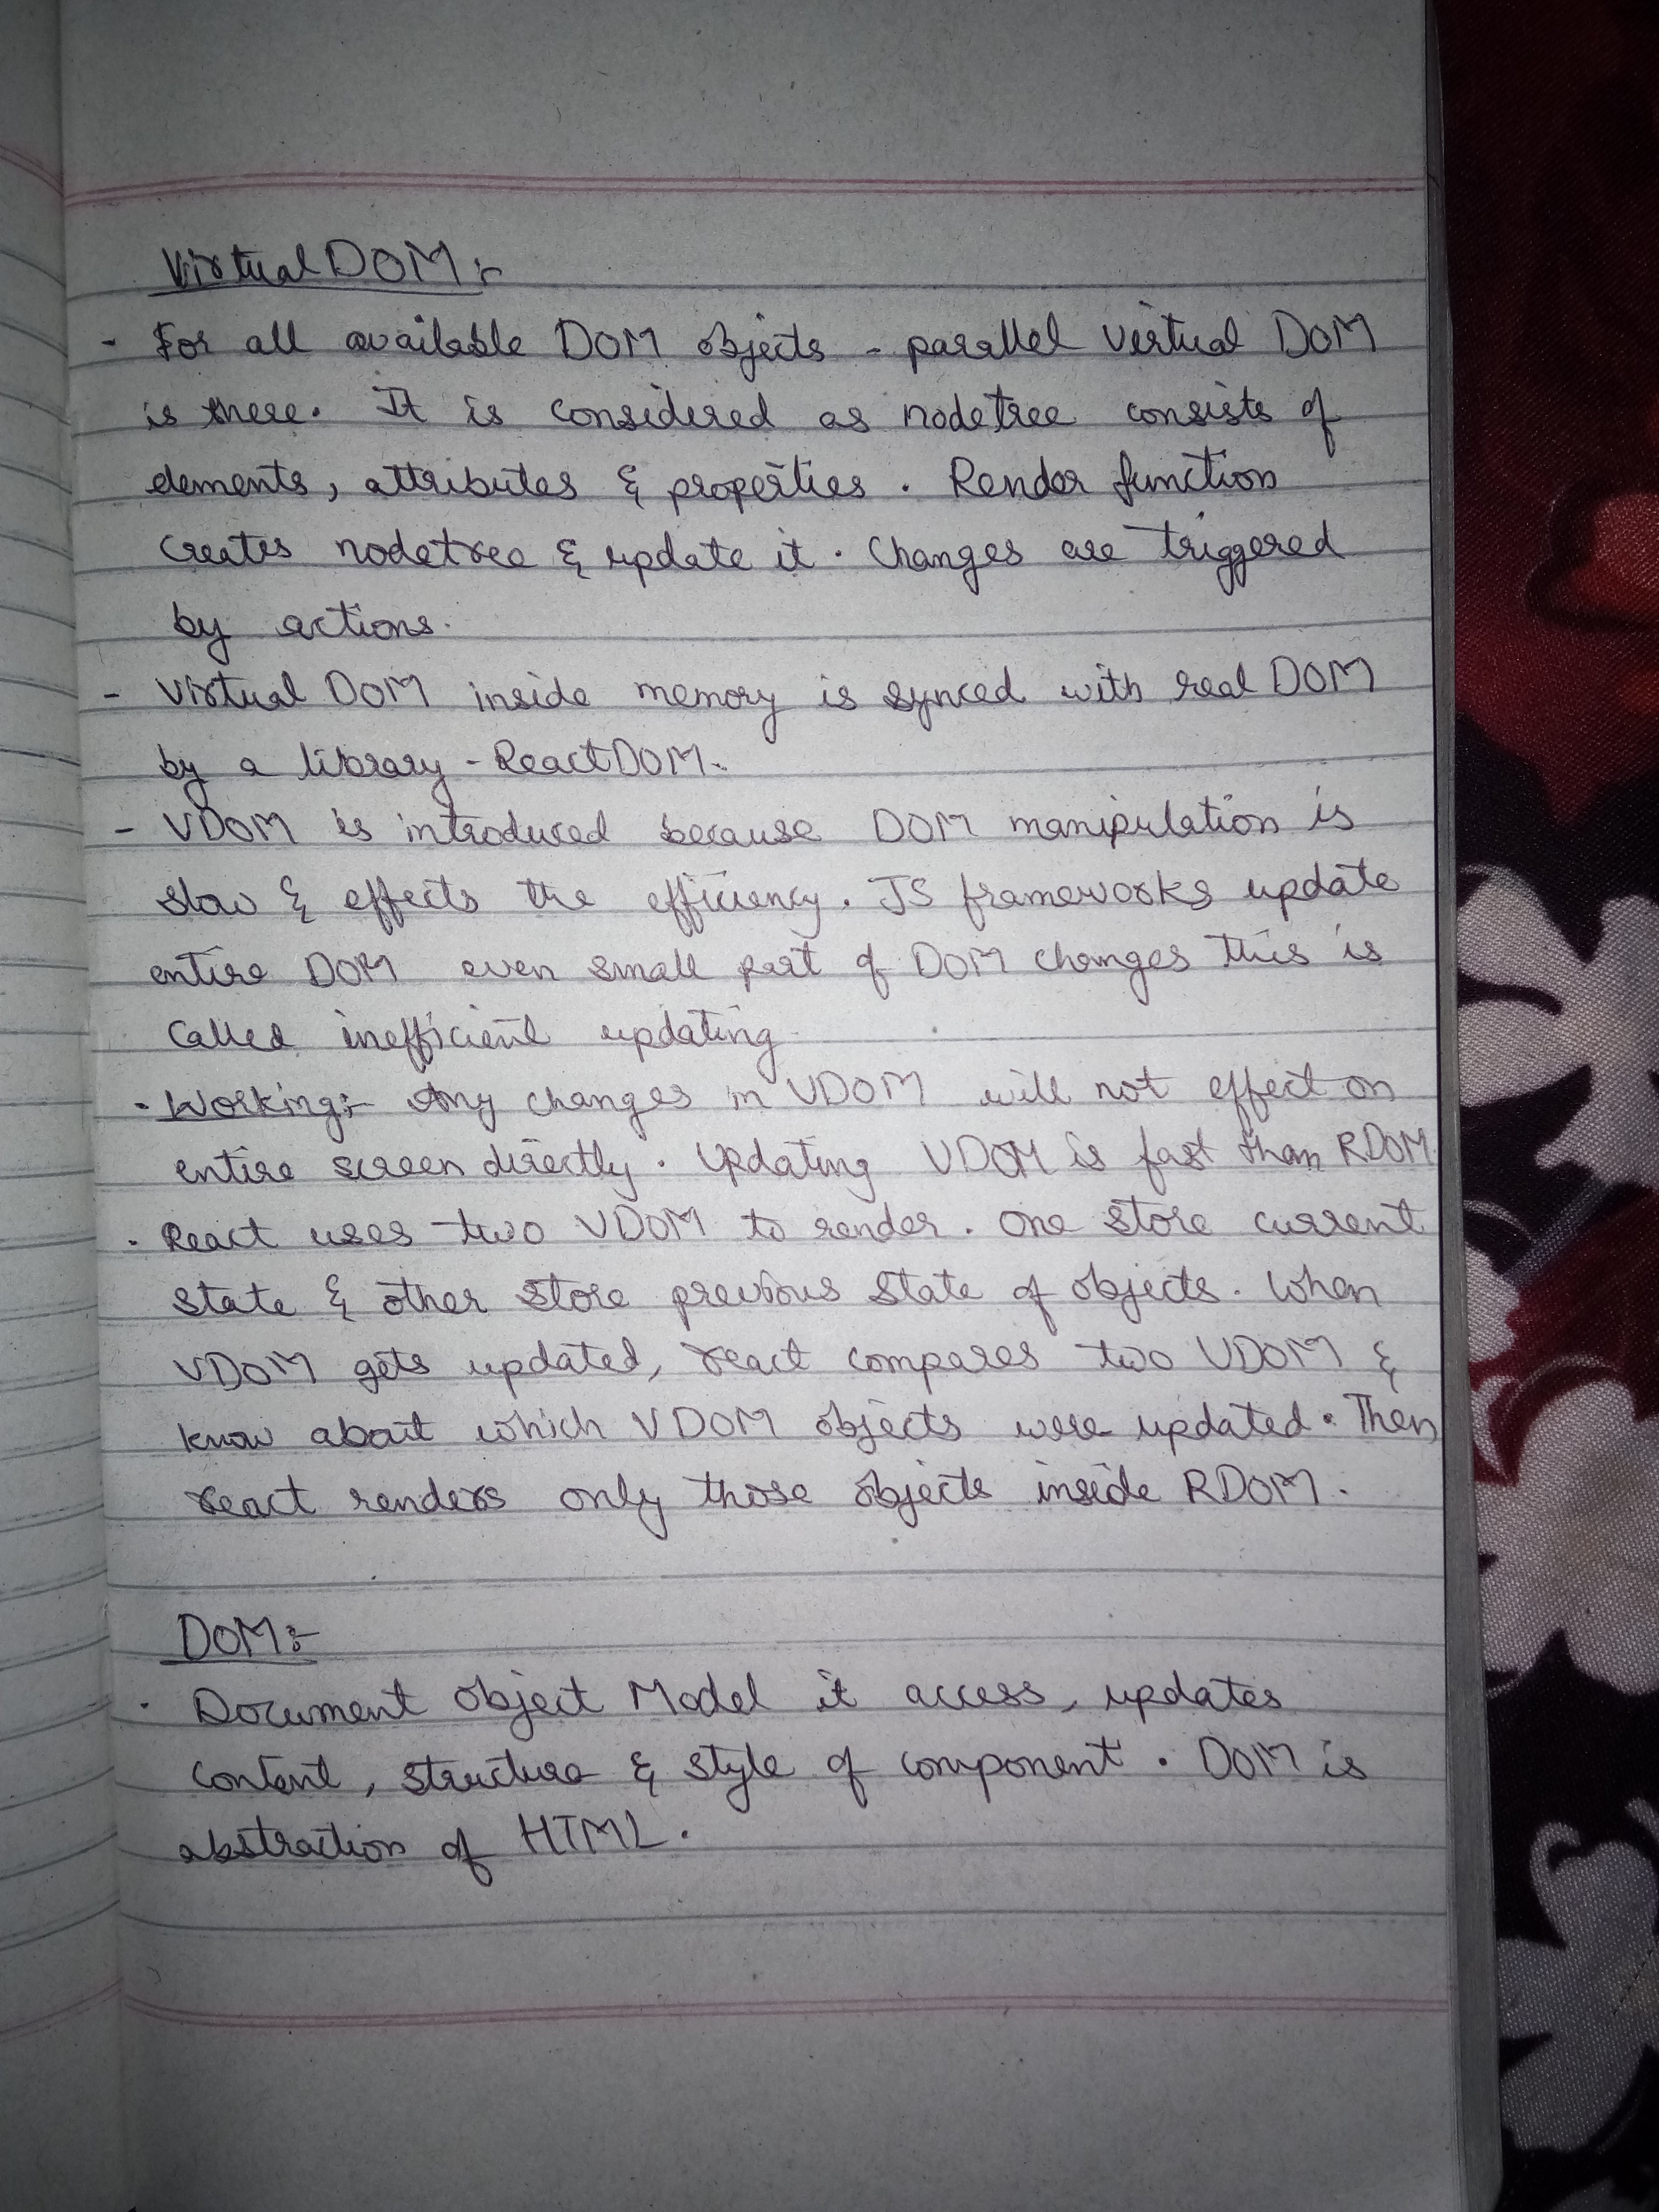 Virtual DOM :-
- For all available DOM objects - parallel virtual DOM
is there. It is considered as nodetree consists of
elements, attributes & properties. Render function
creates nodetree & update it. Changes are triggered
by actions.
- Virtual DOM inside memory is synced with real DOM
by a library - ReactDOM.
- VDOM is introduced because DOM manipulation is
slow & effects the efficiency. JS frameworks update
entire DOM even small part of DOM changes this is
called inefficient updating
. Working:- Any changes in VDOM will not effect on
entire screen directly. Updating VDOM is fast than RDOM
. React uses two VDOM to render. One store current
state & other store previous state of objects. When
VDOM gets updated, react compares two VDOM &
know about which VDOM objects were updated. Then
react renders only those objects inside RDOM.
DOM:-
. Document Object Model it access, updates
content, structure & style of component. DOM is
abstraction of HTML.